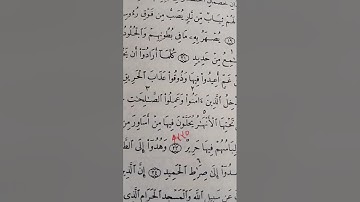 لَهُمْ ثِيَابٌ مِّن نَّارٍ يُصَبُّ مِن فَوْقِ رُءُوسِ
١٩ يُصْهَرُ بِهِۦ مَا فِى بُطُونِهِمْ وَٱلْجُلُودُ
مِعُ مِنْ حَدِيدٍ ٢١ كُلَّمَآ أَرَادُوٓا۟ أَن
غَمٍّ أُعِيدُوا۟ فِيهَا وَذُوقُوا۟ عَذَابَ ٱلْحَرِيقِ
خِلُ ٱلَّذِينَ ءَامَنُوا۟ وَعَمِلُوا۟ ٱلصَّـٰلِحَـٰتِ
تَحْتِهَا ٱلْأَنْهَـٰرُ يُحَلَّوْنَ فِيهَا مِنْ أَسَاوِرَ مِن
لِبَاسُهُمْ فِيهَا حَرِيرٌ ٢٣ وَهُدُوٓا۟ إِلَى ٱلطَّ
هُدُوٓا۟ إِلَىٰ صِرَٰطِ ٱلْحَمِيدِ ٢٤ إِنَّ ٱلَّذِينَ
عَن سَبِيلِ ٱللَّهِ وَٱلْمَسْجِدِ ٱلْحَرَامِ ٱلَّذِى